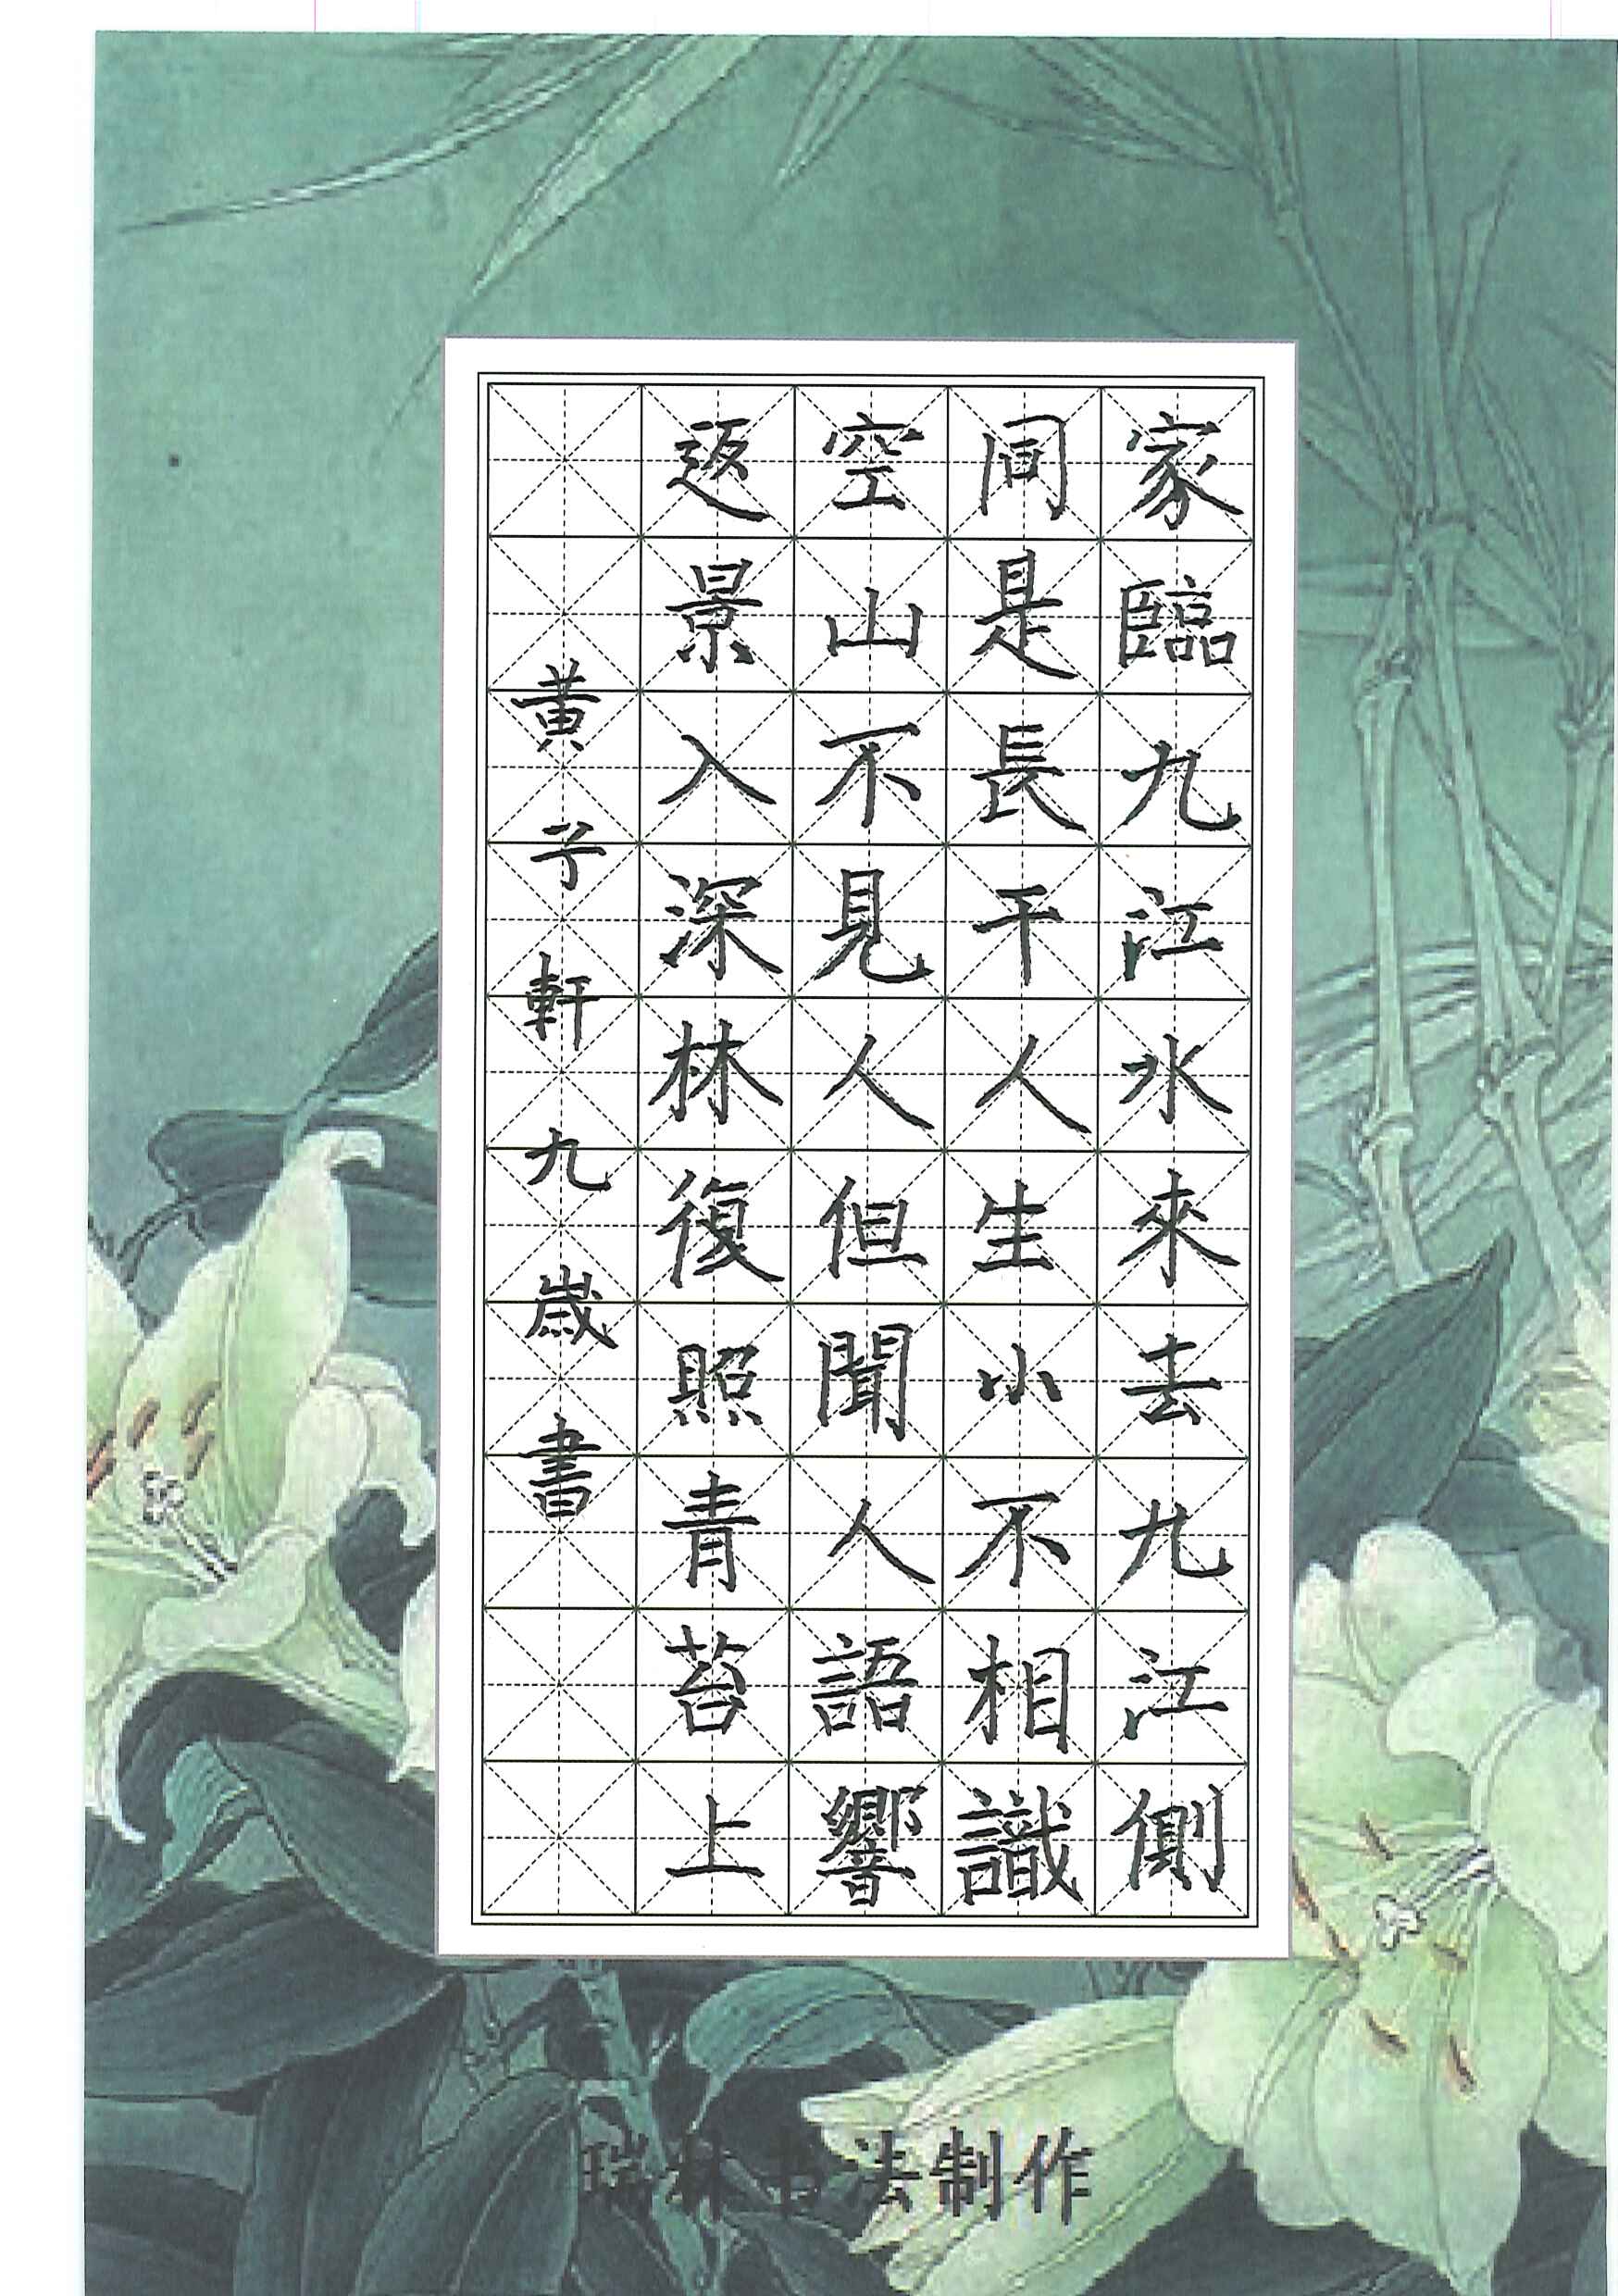 家臨九江水來去九江側
同是長干人生小不相識
空山不見人但聞人語響
返景入深林復照青苔上
黃子軒九歲書
瑞林书法制作